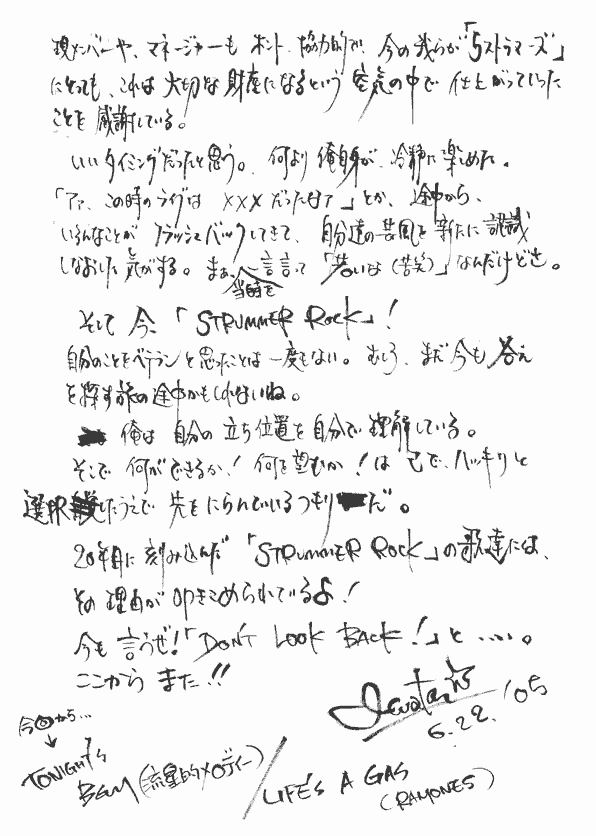 現メンバーや、マネージャーも ホント、協力的で、今の我らが「ストラマーズ」
にとっても、これは 大切な 財産になるという 空気の中で 仕上がっていった
ことを 感謝している。
いいタイミングだったと思う。何より 俺自身が、冷静に 楽しめた。
「アァ、この時のライヴは ×××だったなァ」とか、途中から、
いろんなことが フラッシュバックしてきて、自分達の芸風を 新たに 認識
しなおした 気がする。まぁ、当時を一言 言って「若いは(苦笑)」なんだけどさ。
そして 今、「STRUMMER ROCK」!
自分のことをベテランと思ったことは 一度もない。むしろ、まだ 今も 答え
を探す旅の途中かもしれないね。
俺は 自分の 立ち位置を 自分で 理解している。
そこで 何ができるか!何を望むか!は 己で、ハッキリと
選択したうえで 先をにらんでいるつもりだ。
20年目に 刻み込んだ「STRUMMER ROCK」の歌達には、
その 理由が 叩きこめられているよ!
今も 言うぜ!「DON'T LOOK BACK!」と‥‥。
ここから また!!
6.22.'05
今回から…
↓
TONIGHT'S
BGM (流星的メロディー) / LIFE'S A GAS
(RAMONES)